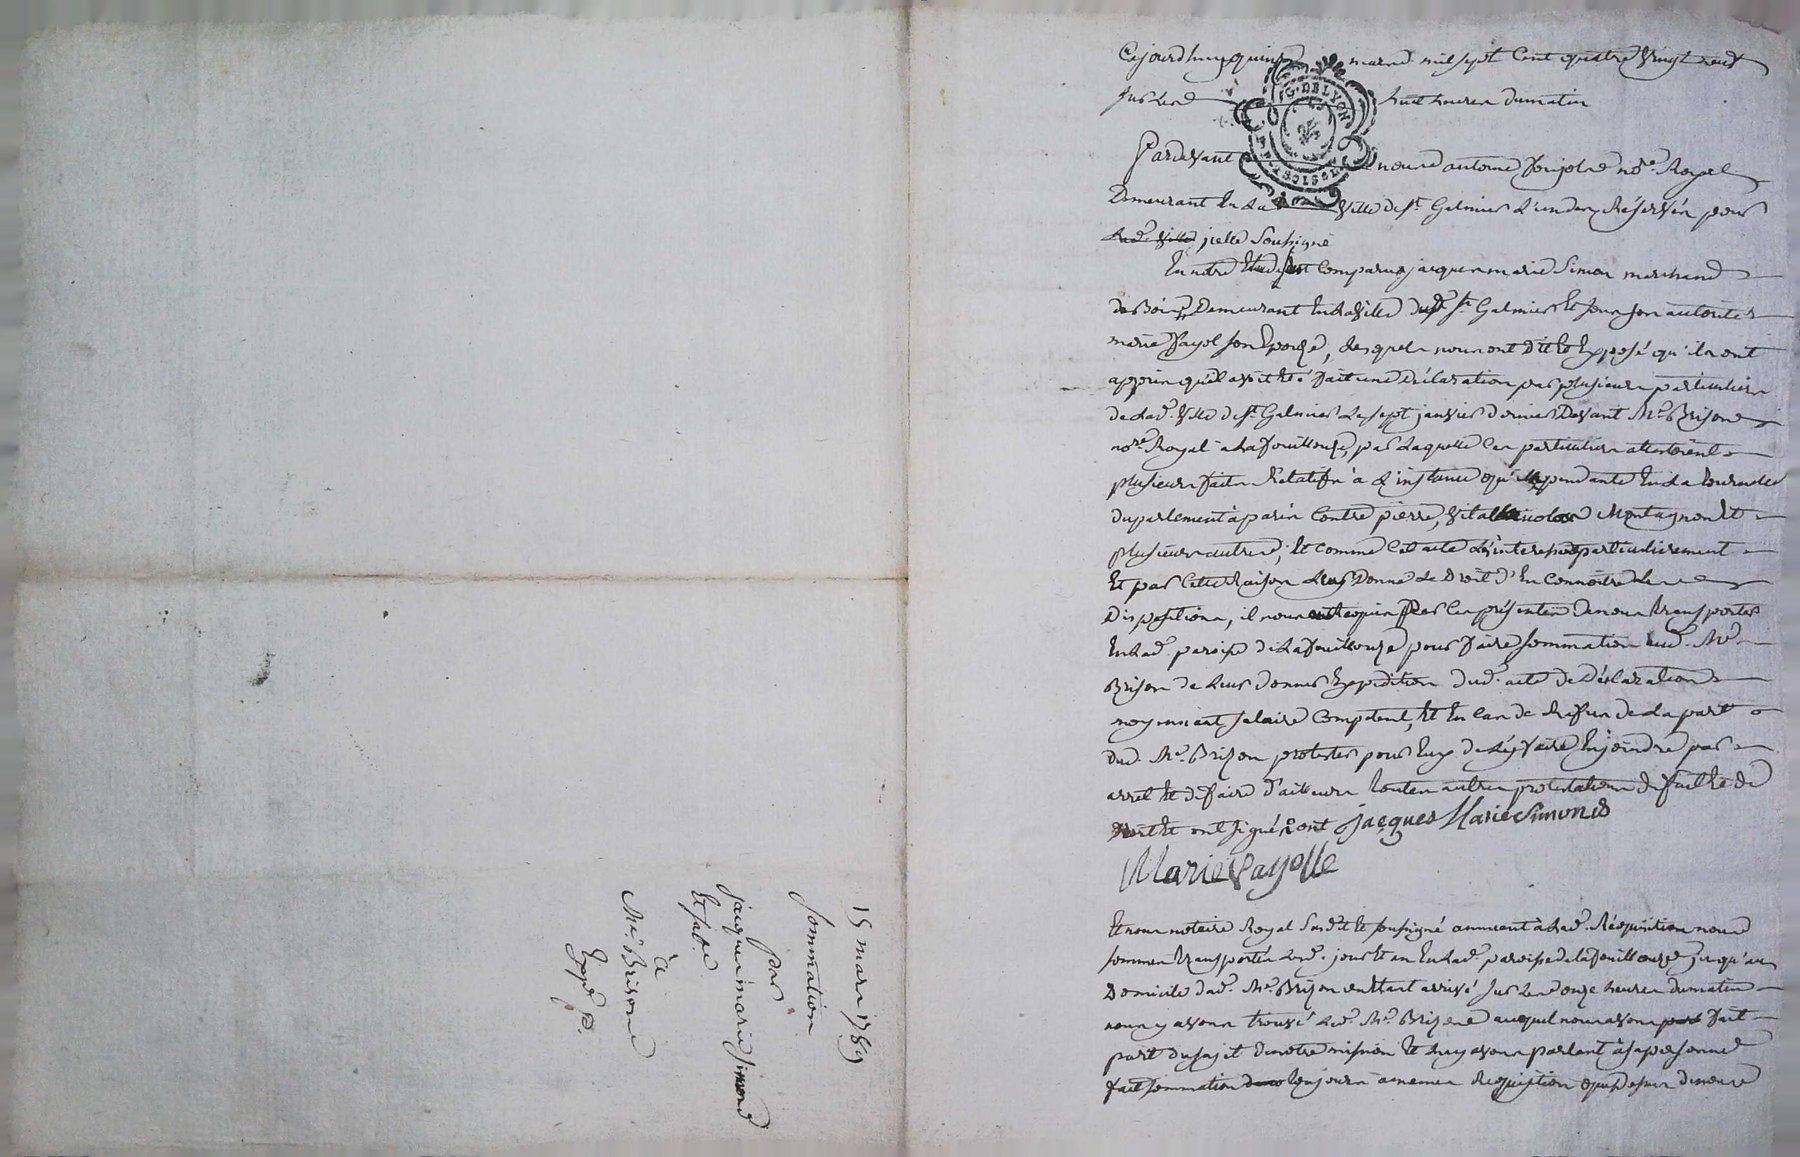 Cejourd'huy quinze mars mil sept cent quatre vingt neuf
sur les huit heures du matin
G. DE LYON
Pardevant nous antoine no.re Royal
Demeurant en la ville de st. Galmier l'un des Réservés pour
lad. ville jcelle soussigné
En notre Etude sont comparus jacques marie Simon marchand
de Bois, Demeurant en la ville dud. st. Galmier et sous son autorité
marie fayol son Epouse, lesquels nous ont dit et Exposé qu'ils ont
appris qu'il avoit été fait une déclaration par plusieurs particuliers
de lad. ville de st. Galmier le sept janvier dernier Devant Me. Brison
no.re Royal à la fouillouze, par laquelle ces particuliers attestoient
plusieurs faits Relatifs à l'instance qui est pendante en la tournelle
du parlement à paris contre pierre, vital nicolas Montagnon et
plusieurs autres; et comme cet acte les interesse particulierement
et par cette Raison leur Donne le Droit d'en connoitre les
Dispositions, il nous ont requis par ces présentes de nous transporter
en lad. paroisse de la fouillouze pour faire sommation aud. Me.
Brison de leur donner Expedition dud. acte de déclaration
moyennant salaire competent, et en cas de Refus de la part
dud. Me. Brison protester pour Eux de l'y faire Enjoindre par
arret et de faire d'ailleurs toutes autres protestations de fait et de
droit et ont signé ont jacques Marie Simond
Marie Fayolle
Et nous notaire Royal susd. et soussigné annuant à lad. Réquisition nous
sommes transportés led. jour et an en lad. paroisse de la fouillouze jusqu'au
Domicile dud. Me. Brison ou étant arrivé sur les onze heures du matin
nous y avons trouvé led. Me. Brison auquel nous avons fait
part du sujet de notre mission et luy avons parlant à sa personne
fait sommation toujours à memes Requisition que dessus de nous
15 mars 1789
Sommation
par
jacques marie Simond
et sa f.e
à
Me. Brison
Expé. P.